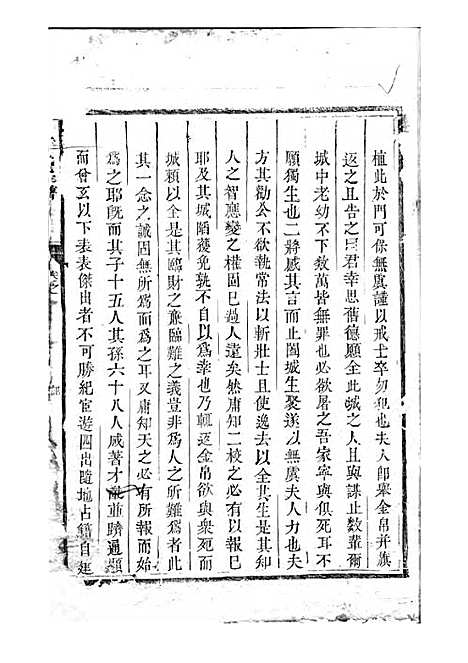 植此於門可保無虞謹以戒士卒勿犯也夫人卽舉金帛幷旗
返之且告之曰君幸思舊德願全此城之人且與謀止數輩爾
城中老幼不下數萬皆無罪也必欲屠之吾家寧與俱死耳不
願獨生也二將感其言而止闔城生聚遂以無虞夫人力也夫
方其勸公不欲執常法以斬壯士且使逸去以全其生是其知
人之智應變之權固已過人遠矣然庸知二校之必有以報已
耶及其城陷獲免孰不自以爲幸也乃輒返金帛欲與衆死而
城賴以全是其臨財之廉臨難之義豈非爲人之所難爲者此
其一念之誠固無所爲而爲之耳又庸知天之必有所報而始
爲之耶旣而其子十五人其孫六十八人咸著才並躋通顯
而曾玄以下表表傑由者不可勝紀宦遊四出隨地占籍自建